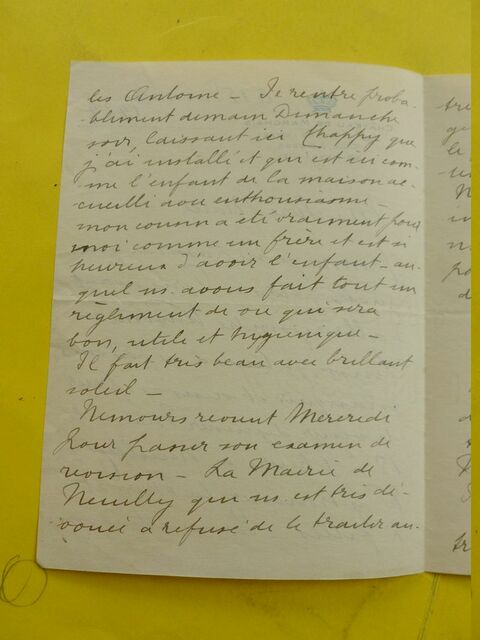 les Antoine – Je rentre proba-
blement demain Dimanche
soir, laissant ici Chappy que
j'ai installé et qui est ici com-
me l'enfant de la maison ac-
cueilli avec enthousiasme –
mon cousin a été vraiment pour
moi comme un frère et est si
heureux d'avoir l'enfant – au-
quel ns. avons fait tout un
règlement de vie qui sera
bon, utile et hygiénique –
Il fait très beau avec brillant
soleil –
Nemours revient Mercredi
pour passer son examen de
révision – La Mairie de
Neuilly qui ns. est très dé-
vouée a refusé de le traiter au-